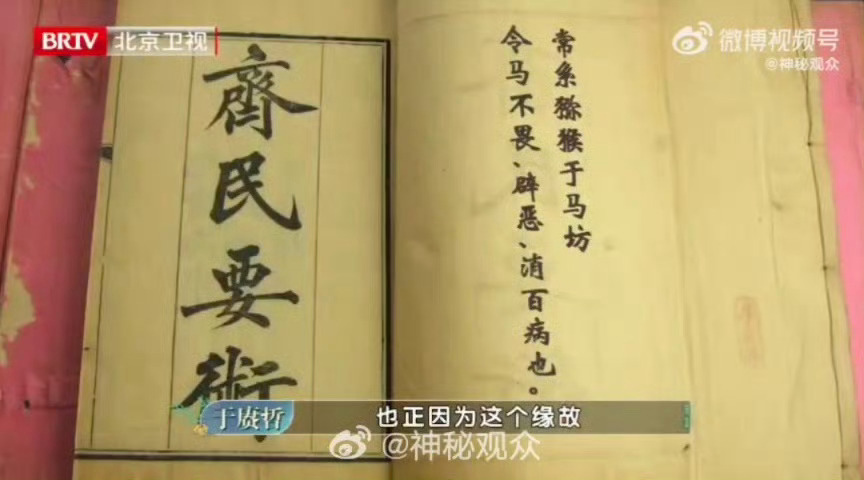 BRTV 北京卫视
微博视频号
@神秘观众
常系猕猴于马坊
令马不畏、辟恶、消百病也。
齊民要術
于赓哲
也正因为这个缘故
@神秘观众